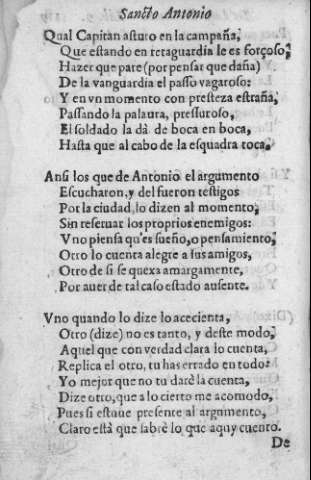 Sancto Antonio
Qual Capitan astuto en la campaña,
Que estando en retaguardia le es forçoso,
Hazer que pare (por pensar que daña)
De la vanguardia el passo vagaroso:
Y en vn momento con presteza estraña,
Passando la palaura, pressuroso,
El soldado la dà de boca en boca,
Hasta que al cabo de la esquadra toca.
Ansi los que de Antonio el argumento
Escucharon, y del fueron testigos
Por la ciudad lo dizen al momento,
Sin reseruar los proprios enemigos:
Vno piensa qu'es sueño, o pensamiento,
Otro lo cuenta alegre a sus amigos,
Otro de si se quexa amargamente,
Por auer de tal caso estado ausente.
Vno quando lo dize lo acecienta,
Otro (dize) no es tanto, y deste modo,
Aquel que con verdad clara lo cuenta,
Replica el otro, tu has errado en todo:
Yo mejor que no tu darè la cuenta,
Dize otro, que a lo cierto me acomodo,
Pues si estuue presente al argumento,
Claro està que sabrè lo que aquy cuento.
De